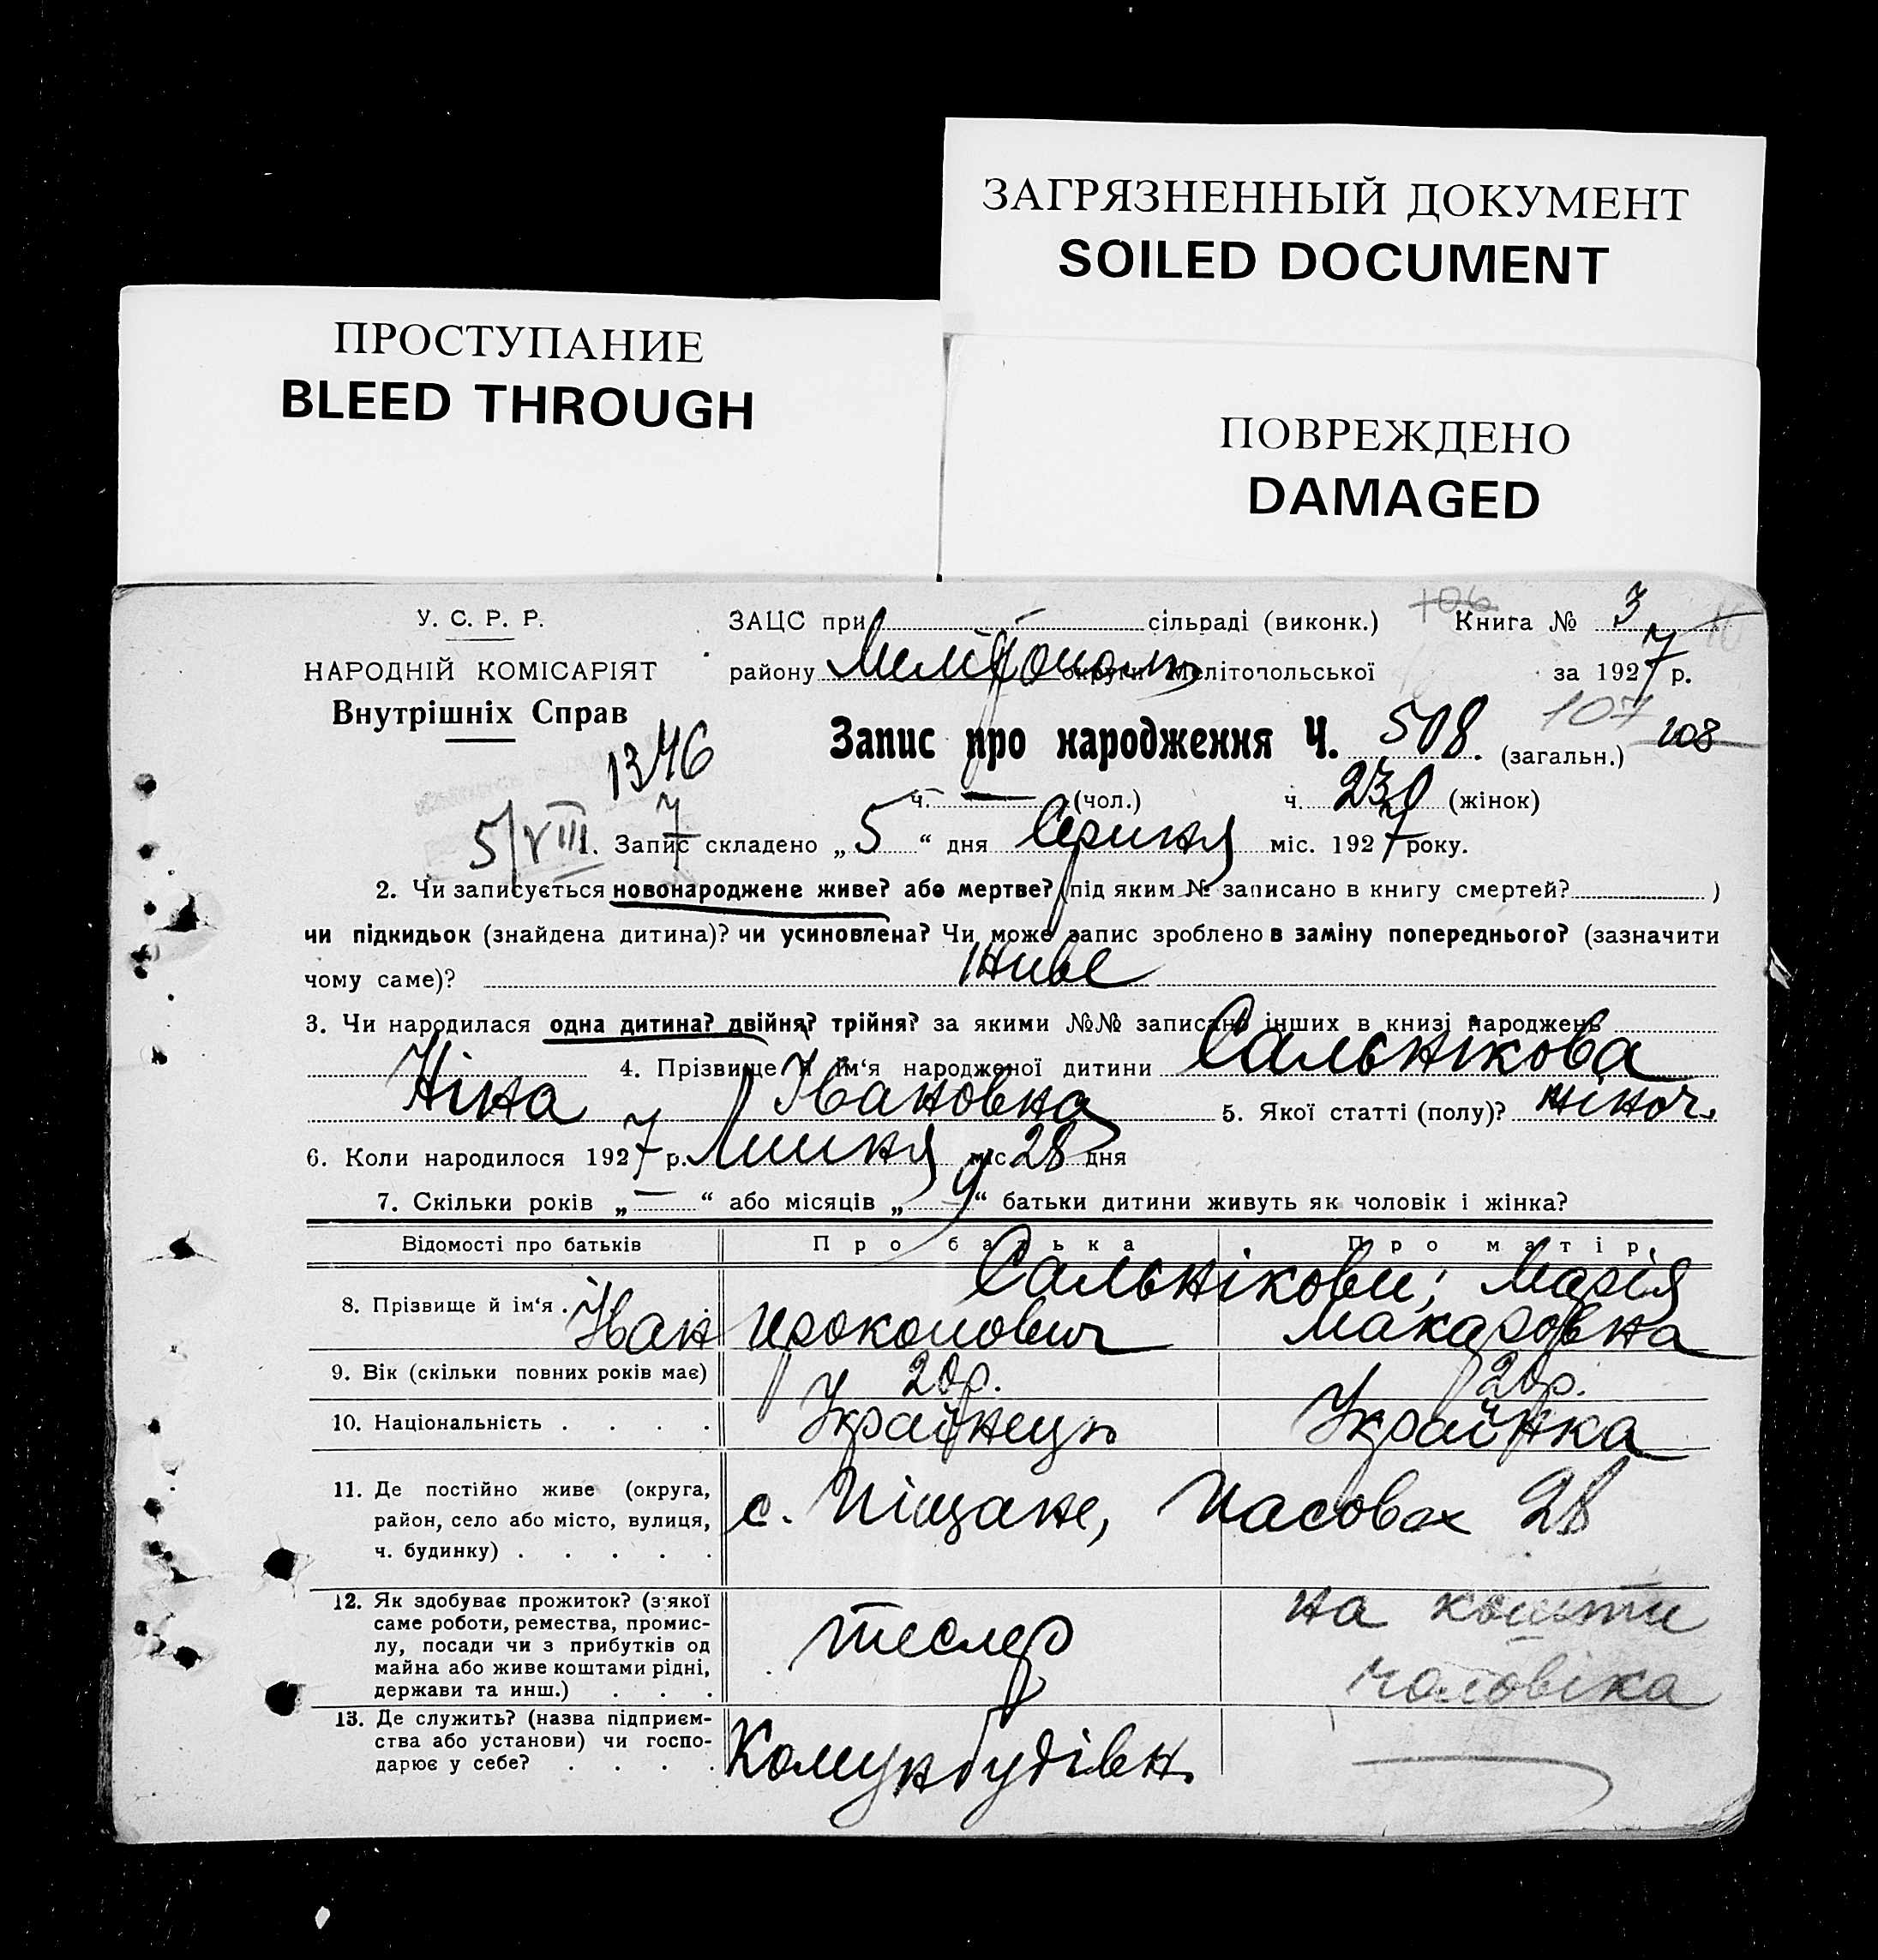 ЗАГРЯЗНЕННЫЙ ДОКУМЕНТ
SOILED DOCUMENT
ПРОСТУПАНИЕ
BLEED THROUGH
ПОВРЕЖДЕНО
DAMAGED
У. С. Р. Р.
ЗАЦС при сільраді (виконк.) 106 Книга № 3
НАРОДНІЙ КОМІСАРІЯТ
району Мелітополь округи Мелітопольської за 1927 р.
Внутрішніх Справ
107
1346
Запис про народження Ч. 508. (загальн.) 108
ч. — (чол.) ч. 230 (жінок)
5/VIII 7 1. Запис складено „ 5 “ дня Серпня міс. 1927 року.
2. Чи записується новонароджене живе? або мертве? (під яким № записано в книгу смертей? )
чи підкидьок (знайдена дитина)? чи усиновлена? Чи може запис зроблено в заміну попереднього? (зазначити
чому саме)? Живе
3. Чи народилася одна дитина? двійня? трійня? за якими №№ записано інших в книзі народжень
4. Прізвище й ім‘я народженої дитини Сальнікова
Ніна Івановна 5. Якої статті (полу)? жіноч.
6. Коли народилося 1927 р. Липня міс 28 дня
7. Скільки років „ — “ або місяців „ 9 “ батьки дитини живуть як чоловік і жінка?
Відомості про батьків Про батька Про матір
8. Прізвище й ім‘я . Сальнікови; Марія
Іван Прокопович Макаровна
9. Вік (скільки повних років має) 20р. 20р.
10. Національність . . . . Украйнець Украйнка
11. Де постійно живе (округа,
район, село або місто, вулиця,
ч. будинку) . . . . .
с. Піщане, Часовая 28
12. Як здобуває прожиток? (з'якої
саме роботи, ремества, промис-
лу, посади чи з прибутків од
майна або живе коштами рідні,
держави та инш.) . . .
тесляр на кошти
чоловіка
13. Де служить? (назва підприєм-
ства або установи) чи госпо-
дарює у себе? . . . .
Комунбудівн. —